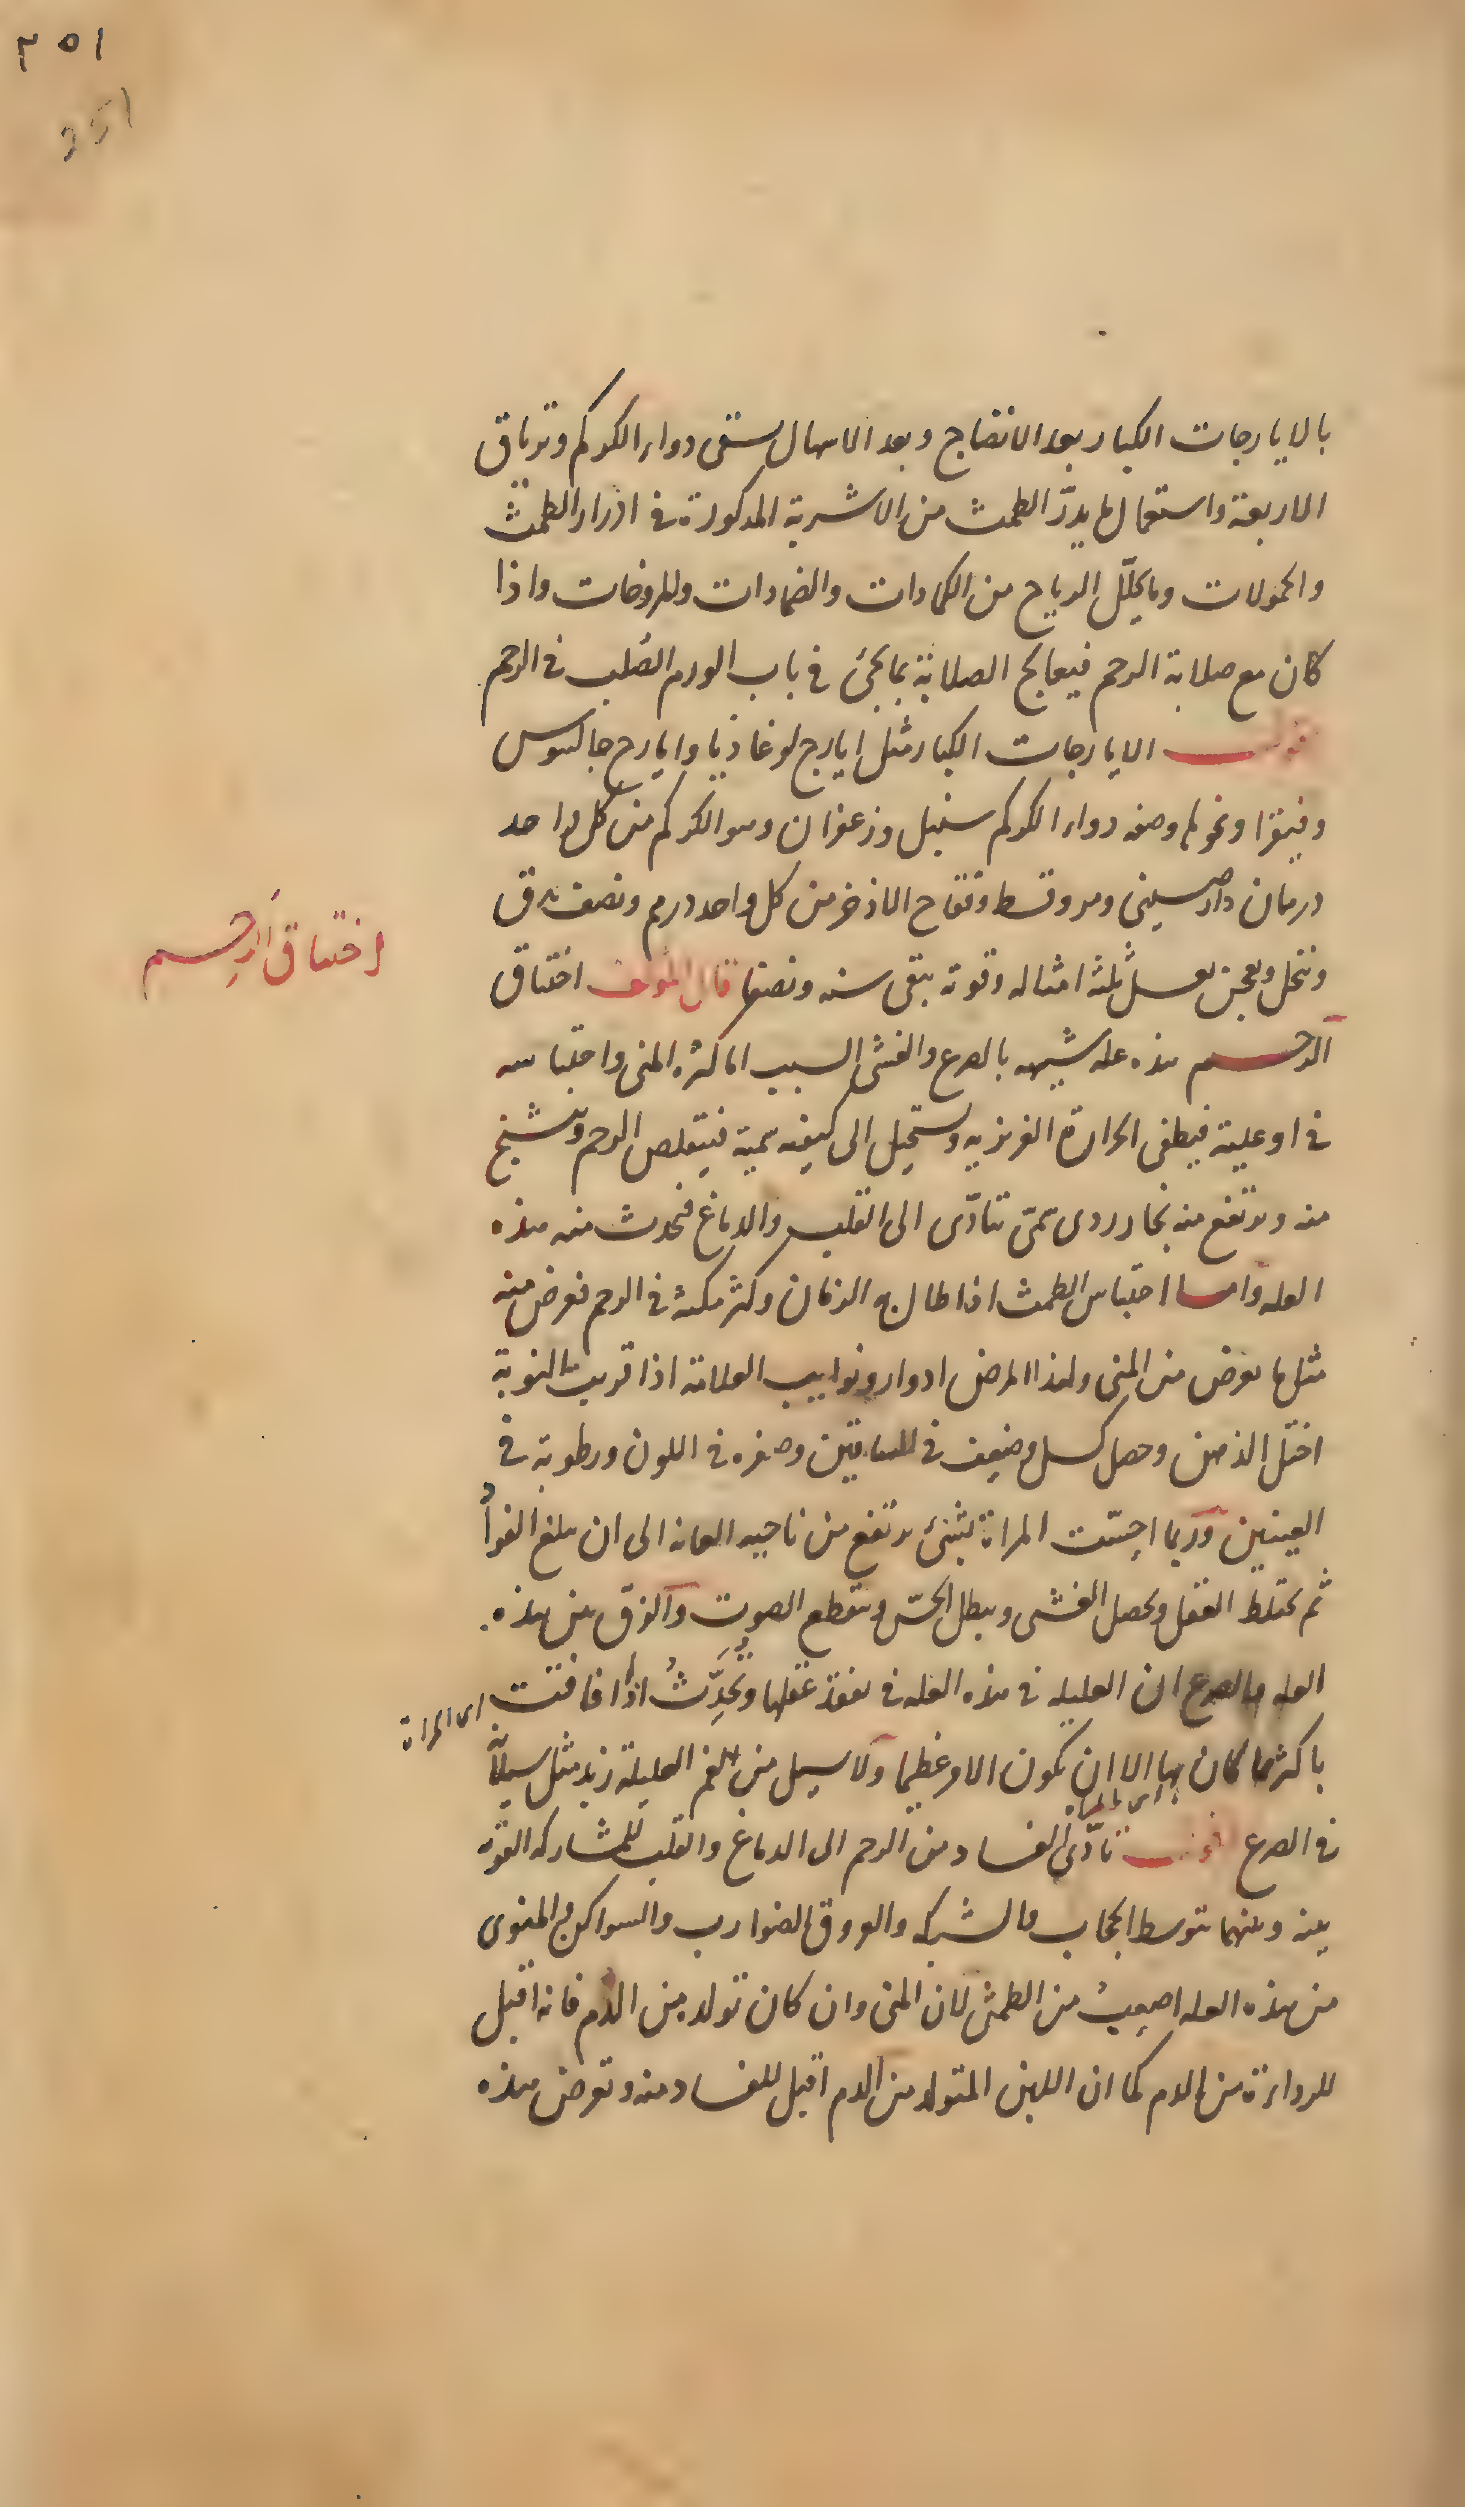 ٢٥١
251
بالايارجات الكبار بعد الانضاج وبعد الاسهال يسقى دواء الكركم وترياق
الاربعة واستعمال ما يدرّ الطمث من الاشربة المذكورة في ادرار الطمث
والحمولات وما يحلّل الرياح من الكمادات والضمادات والمروخات واذا
كان مع صلابة الرحم فيعالج الصلابة بما يجئ في باب الورم الصُلب في الرحم
اقول الايارجات الكبار مثل ايارج لوغاذيا وايارج جالينوس
وفيقرا ونحوها وصفه دواء الكركم سنبل وزعفران وهو الكركم من كل واحد
درهمان دارصينى ومر وقسط وفقاح الاذخر من كل واحد درهم ونصف يدق
وينخل ويعجن بعسل ثلثة امثاله وقوته يبقى سنه ونصفا قال المؤلف اختناق
اختناق الرحم
الرحم هذه عله شبيهه بالصرع والغشى السبب اما كثرة المنى واحتباسه
في اوعيته فيطفى الحرارة الغريزيه ويستحيل الى كيفيه سمية فيتقلص الرحم ويتشنج
منه ويرتفع منه بخار ردى سمّى تتادّى الى القلب والدماغ فيحدث منه هذه
العله واما احتباس الطمث اذا طال به الزمان وكثر مكثه في الرحم فعرض منه
مثل ما يعرض من المنى ولهذا المرض ادوار ونوايب العلامة اذا قربت النوبة
اختل الذهن وحصل كسل وضعف في الساقين وصفره في اللون ورطوبة في
العينين وربما احسّت المراة بشئ يرتفع من ناحيه العانه الى ان يبلغ الفواد
ثم يختلط العقل ويحصل الغشى ويبطل الحسّ وينقطع الصوت والفرق بين هذه
العله والصرع ان العليله في هذه العله في تفقد عقلها وتُحدِّثُ اذا افاقت
اى المراة
باكثر ما كان بها الا ان يكون الامر عظيما ولا يسيل من الفم العليلة زبد مثل سيلانه
في الصرع اقول تادّى الفساد من الرحم الى الدماغ والقلب للمشاركه القويه
بينه وبينهما بتوسط الحجاب والشبكه والعروق الضوارب والسواكن والمنوى
من هذه العله اصعبُ من الطمثى لان المنى وان كان تولد من الدم فانه اقبل
للرداءة من الدم كما ان اللبن المتولد من الدم اقبل للفساد منه وتعرض هذه